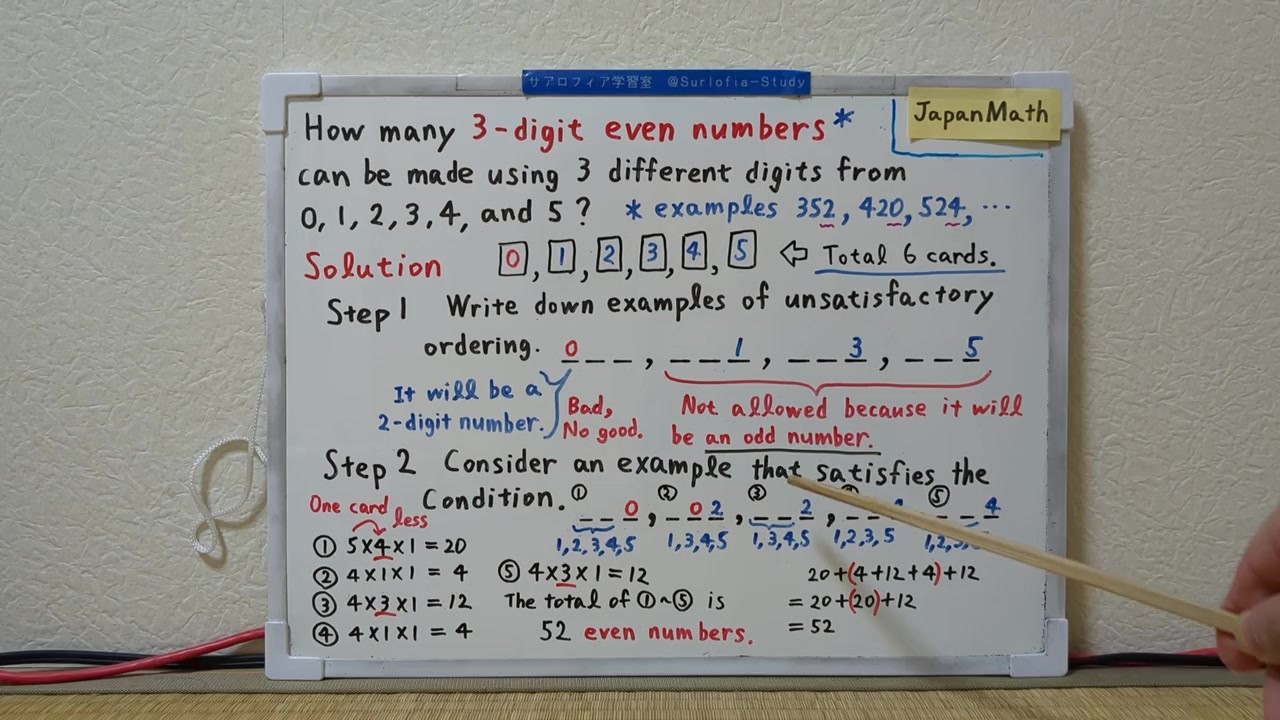 サアロフィア学習室 @Surlofia-Study
JapanMath
How many 3-digit even numbers*
can be made using 3 different digits from
0, 1, 2, 3, 4, and 5 ? * examples 352, 420, 524, ...
Solution 0, 1, 2, 3, 4, 5 ⇦ Total 6 cards.
Step 1 Write down examples of unsatisfactory
ordering. 0 _ _ , _ _ 1, _ _ 3, _ _ 5
It will be a
2-digit number.
Bad,
No good.
Not allowed because it will
be an odd number.
Step 2 Consider an example that satisfies the
Condition. ① _ _ 0, ② _ 0 2, ③ _ _ 2, _ ⑤ _ _ 4
1,2,3,4,5 1,3,4,5 1,3,4,5 1,2,3,5 1,2,
One card
less
① 5×4×1 = 20
② 4×1×1 = 4
③ 4×3×1 = 12
④ 4×1×1 = 4
⑤ 4×3×1 = 12
The total of ①~⑤ is
52 even numbers.
20+(4+12+4)+12
= 20+(20)+12
= 52